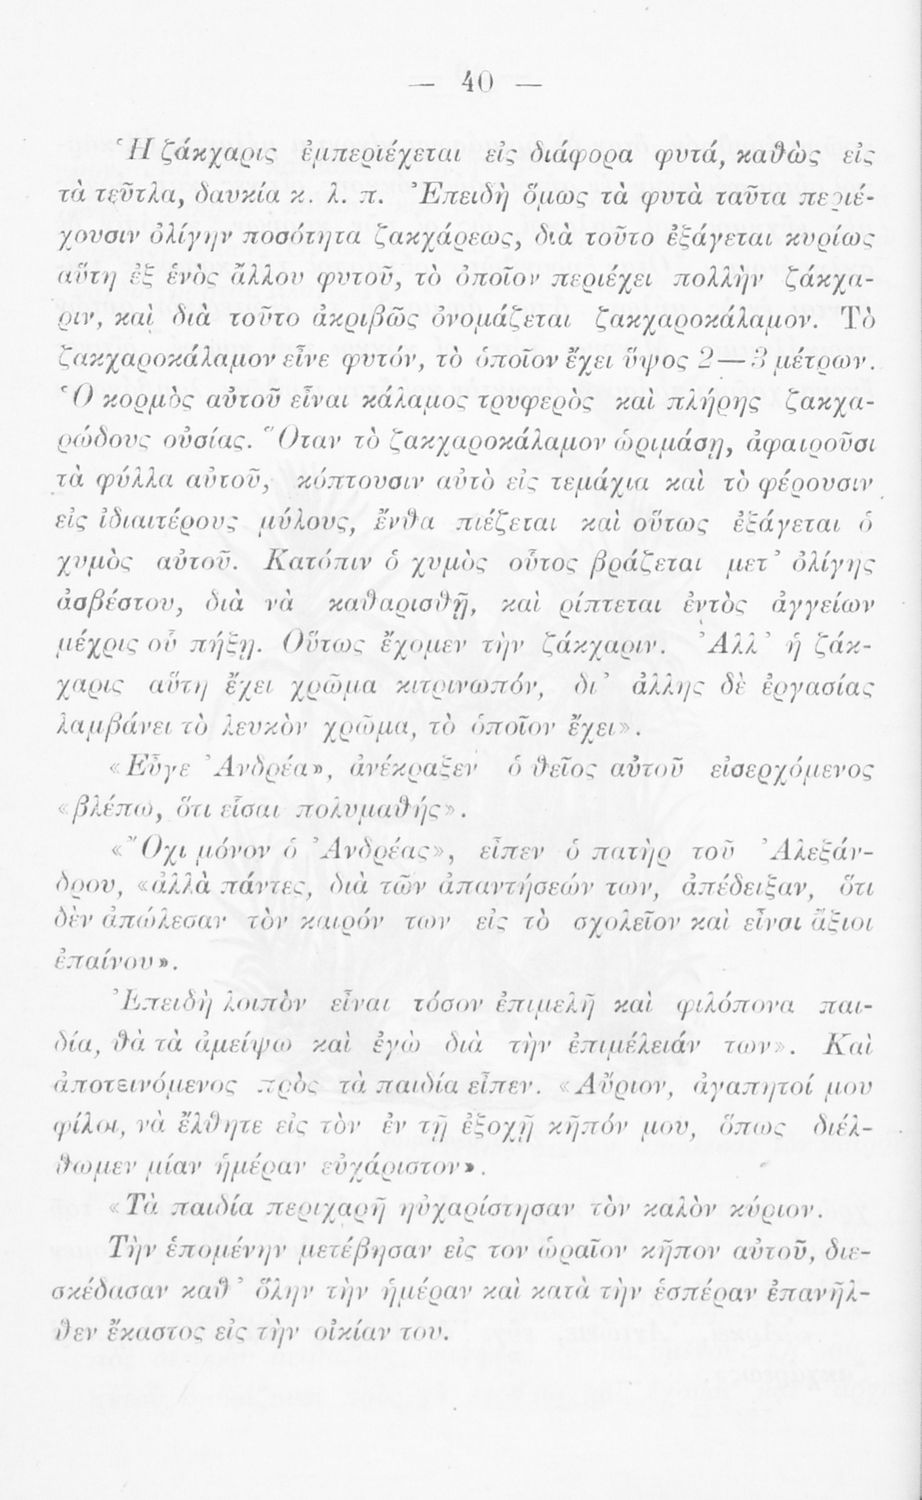 — 40 —
Ἡ ζάκχαρις ἐμπεριέχεται εἰς διάφορα φυτά, καθὼς εἰς
τὰ τεῦτλα, δαυκία κ. λ. π. Ἐπειδὴ ὅμως τὰ φυτὰ ταῦτα περιέ-
χουσιν ὀλίγην ποσότητα ζακχάρεως, διὰ τοῦτο ἐξάγεται κυρίως
αὕτη ἐξ ἑνὸς ἄλλου φυτοῦ, τὸ ὁποῖον περιέχει πολλὴν ζάκχα-
ριν, καὶ διὰ τοῦτο ἀκριβῶς ὀνομάζεται ζακχαροκάλαμον. Τὸ
ζακχαροκάλαμον εἶνε φυτόν, τὸ ὁποῖον ἔχει ὕψος 2—3 μέτρων.
Ὁ κορμὸς αὐτοῦ εἶναι κάλαμος τρυφερὸς καὶ πλήρης ζακχα-
ρώδους οὐσίας. Ὅταν τὸ ζακχαροκάλαμον ὡριμάσῃ, ἀφαιροῦσι
τὰ φύλλα αὐτοῦ, κόπτουσιν αὐτὸ εἰς τεμάχια καὶ τὸ φέρουσιν
εἰς ἰδιαιτέρους μύλους, ἔνθα πιέζεται καὶ οὕτως ἐξάγεται ὁ
χυμὸς αὐτοῦ. Κατόπιν ὁ χυμὸς οὗτος βράζεται μετ᾽ ὀλίγης
ἀσβέστου, διὰ νὰ καθαρισθῇ, καὶ ρίπτεται ἐντὸς ἀγγείων
μέχρις οὗ πήξῃ. Οὕτως ἔχομεν τὴν ζάκχαριν. Ἀλλ᾽ ἡ ζάκ-
χαρις αὕτη ἔχει χρῶμα κιτρινωπόν, δι᾽ ἄλλης δὲ ἐργασίας
λαμβάνει τὸ λευκὸν χρῶμα, τὸ ὁποῖον ἔχει».
«Εὖγε Ἀνδρέα», ἀνέκραξεν ὁ θεῖος αὐτοῦ εἰσερχόμενος
«βλέπω, ὅτι εἶσαι πολυμαθής».
«Ὄχι μόνον ὁ Ἀνδρέας», εἶπεν ὁ πατὴρ τοῦ Ἀλεξάν-
δρου, «ἀλλὰ πάντες, διὰ τῶν ἀπαντήσεών των, ἀπέδειξαν, ὅτι
δὲν ἀπώλεσαν τὸν καιρόν των εἰς τὸ σχολεῖον καὶ εἶναι ἄξιοι
ἐπαίνου».
Ἐπειδὴ λοιπὸν εἶναι τόσον ἐπιμελῆ καὶ φιλόπονα παι-
δία, θὰ τὰ ἀμείψω καὶ ἐγὼ διὰ τὴν ἐπιμέλειάν των». Καὶ
ἀποτεινόμενος πρὸς τὰ παιδία εἶπεν. «Αὔριον, ἀγαπητοί μου
φίλοι, νὰ ἔλθητε εἰς τὸν ἐν τῇ ἐξοχῇ κῆπόν μου, ὅπως διέλ-
θωμεν μίαν ἡμέραν εὐχάριστον».
«Τὰ παιδία περιχαρῆ ηὐχαρίστησαν τὸν καλὸν κύριον.
Τὴν ἑπομένην μετέβησαν εἰς τον ὡραῖον κῆπον αὐτοῦ, διε-
σκέδασαν καθ᾽ ὅλην τὴν ἡμέραν καὶ κατὰ τὴν ἑσπέραν ἐπανῆλ-
θεν ἕκαστος εἰς τὴν οἰκίαν του.